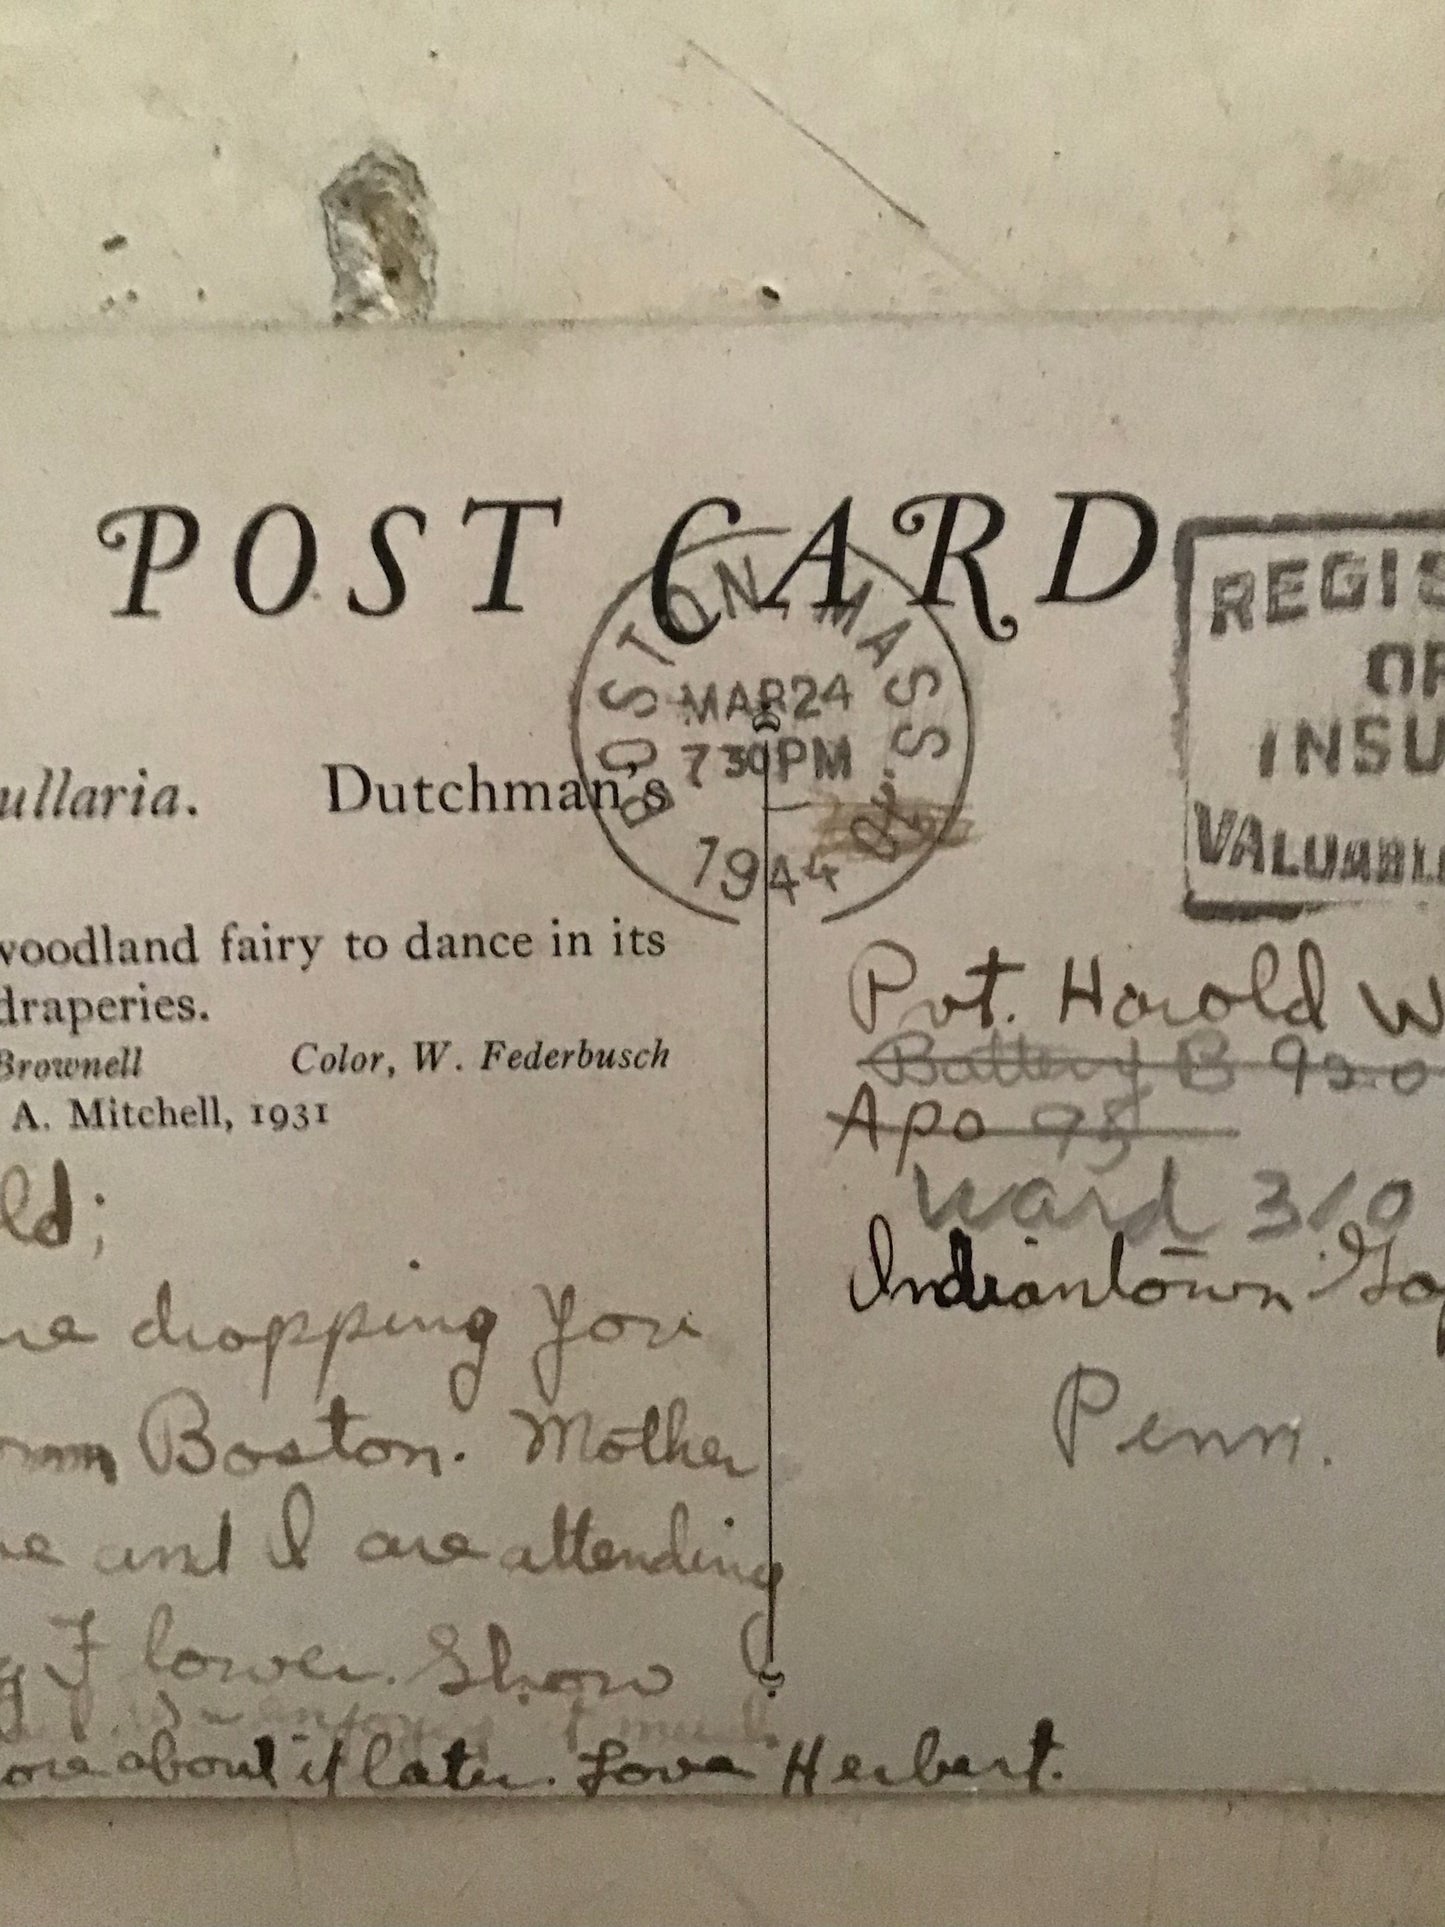 POST CARD
BOSTON, MASS.
MAR 24
7 30 PM
1944
REGIS
OR
INSU
VALUABLE
ullaria. Dutchman's
woodland fairy to dance in its
draperies.
Brownell Color, W. Federbusch
A. Mitchell, 1931
ld;
dropping you
Boston. Mother
and I are attending
g Flower. Show
enjoying
ore about it later. Love Herbert.
Pvt. Harold W
Battery B 920
Apo 95
Ward 310
Indiantown Gap
Penn.